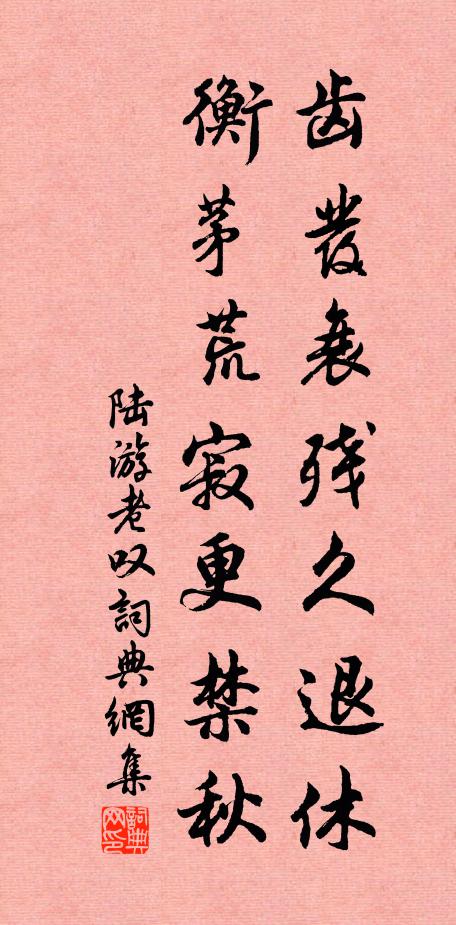 齿发衰残久退休
衡茅荒寂更禁秋
陆游老叹詞典網集
詞典网印